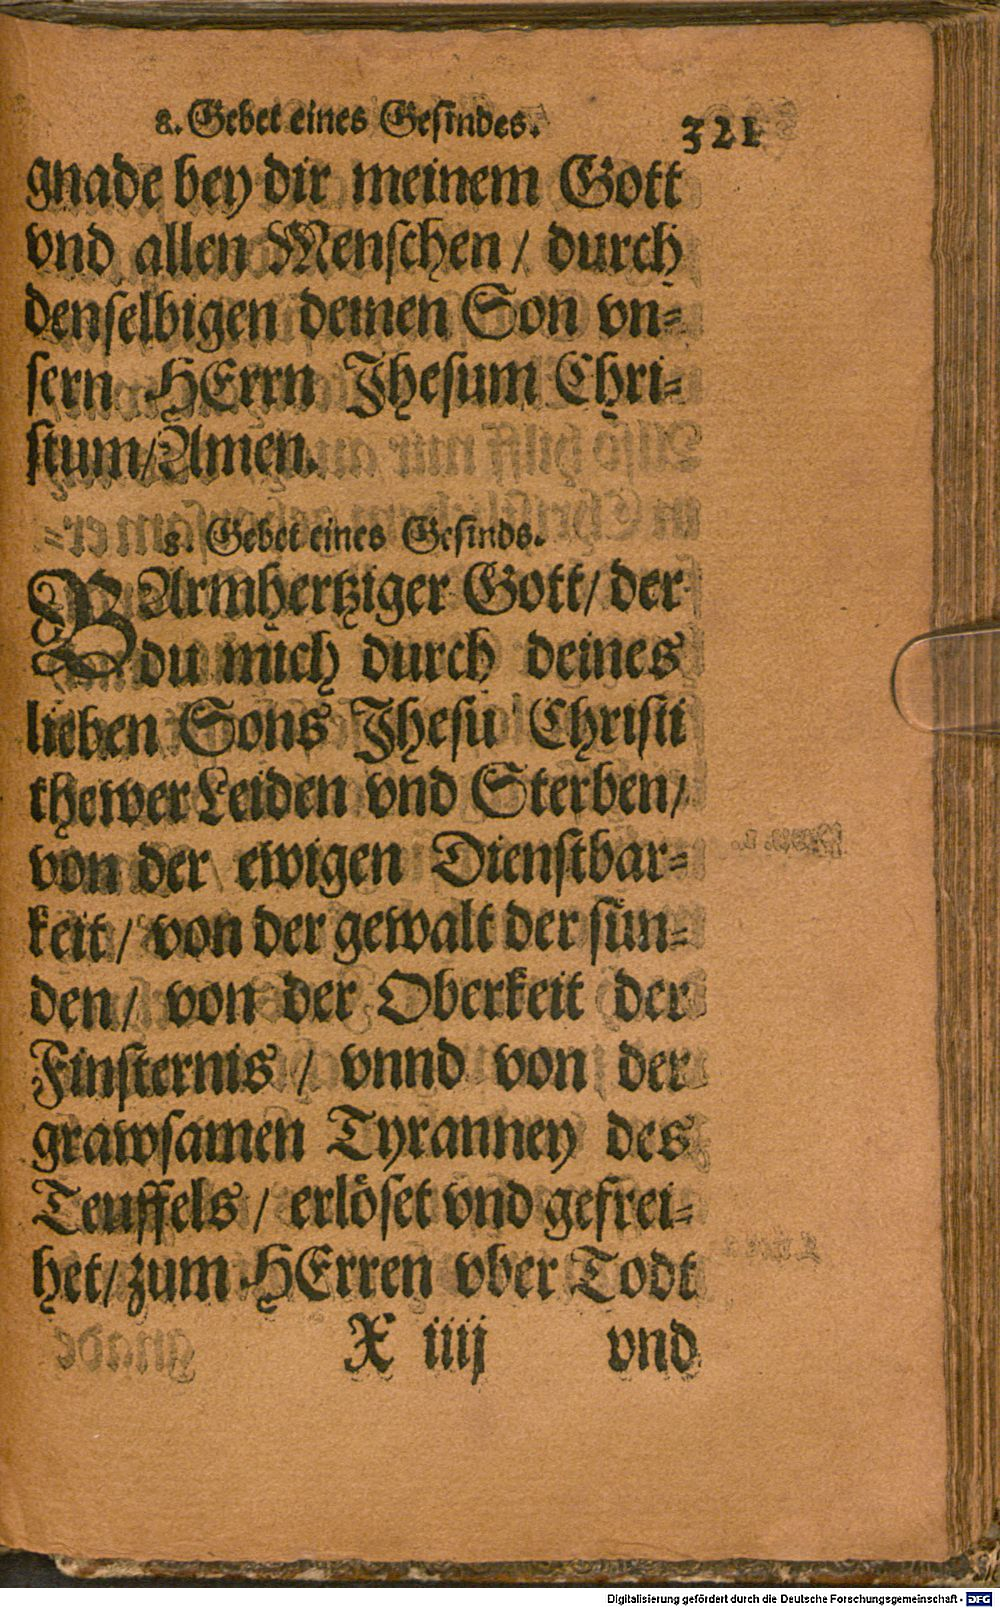 8. Gebet eines Gesindes. 321
gnade bey dir meinem Gott
vnd allen Menschen / durch
denselbigen deinen Son vn-
sern HErrn Jhesum Chri-
stum/Amen.
8. Gebet eines Gesinds.
BArmhertziger Gott/ der
du mich durch deines
lieben Sons Jhesu Christi
thewer Leiden vnd Sterben/
von der ewigen Dienstbar-
keit / von der gewalt der sün-
den / von der Oberkeit der
Finsternis / vnnd von der
grawsamen Tyranney des
Teuffels / erlöset vnd gefrei-
het/ zum HErren vber Todt
X iiij vnd
Digitalisierung gefördert durch die Deutsche Forschungsgemeinschaft - DFG